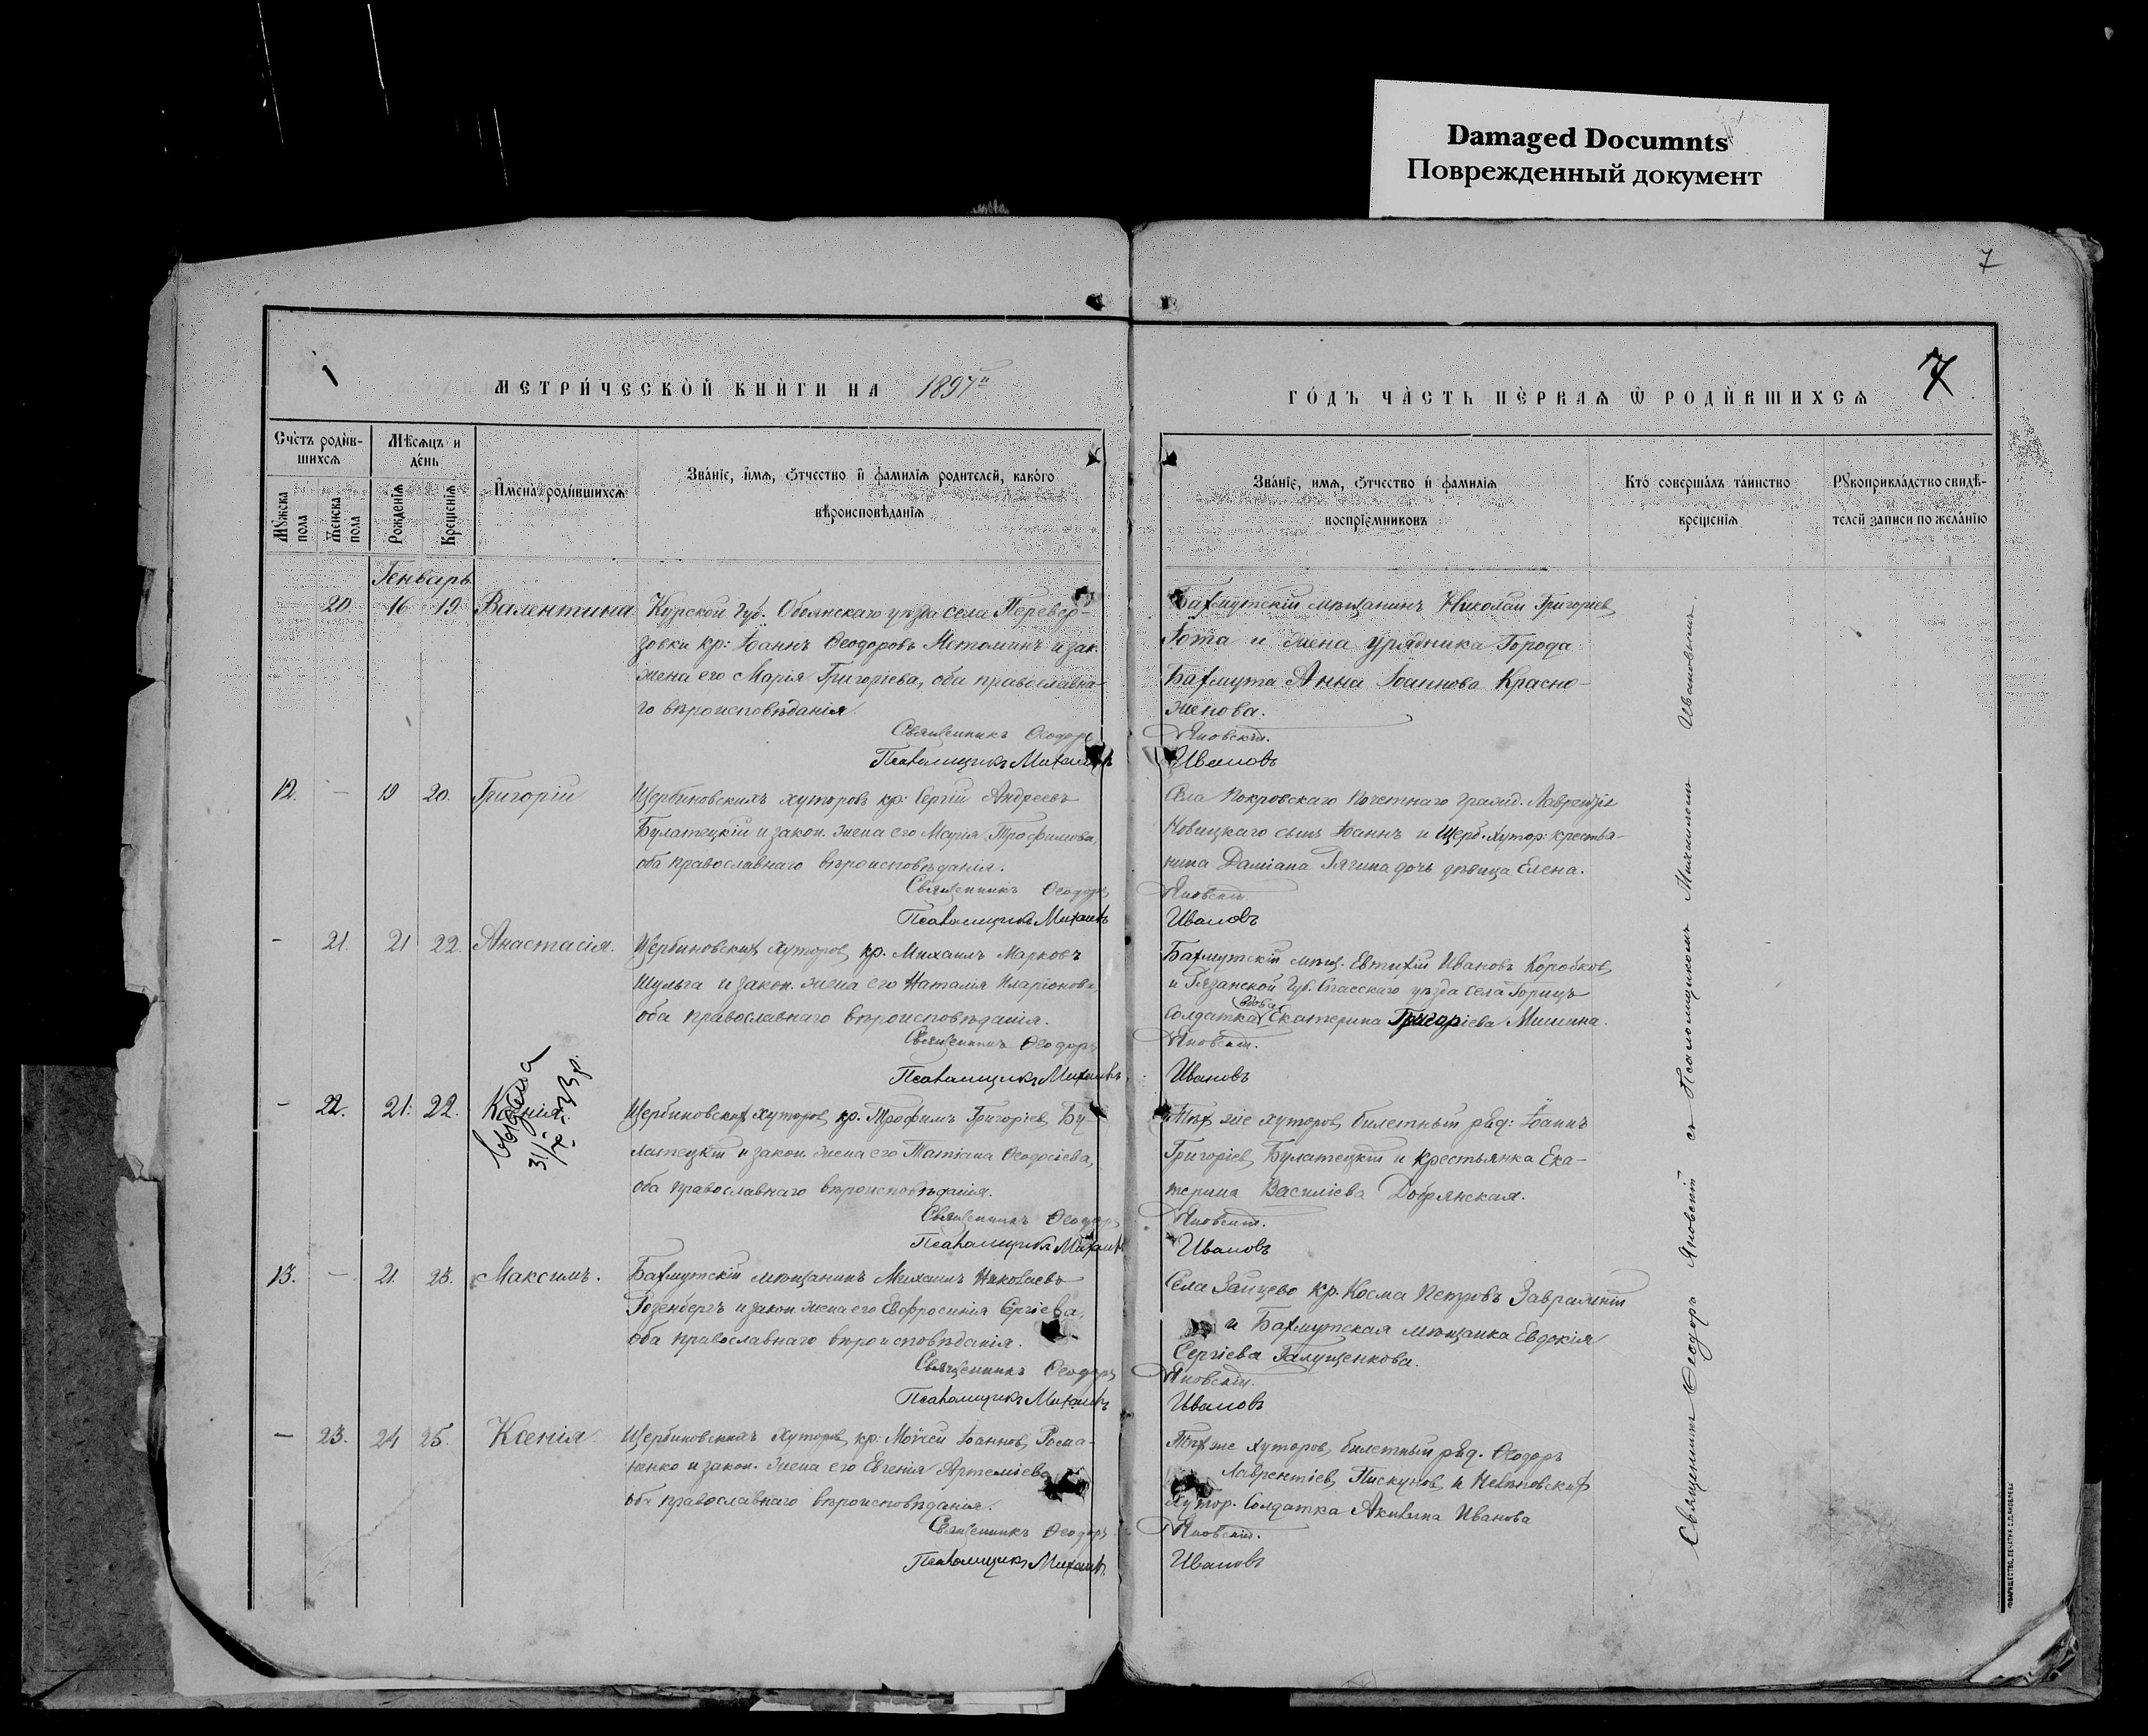 Damaged Documnts
Поврежденный документ
7
МЕТРИ́ЧЕСКОЙ КНИ́ГИ НА 1897й
ГО́ДЪ ЧА́СТЬ ПЕ́РВАѦ Ѡ РОДИ́ВШИХСѦ
7
Сче́тъ роди́в-
шихсѧ
Мѣ́сѧцъ и
де́нь
Мꙋжска пола
Женска пола
Рожденїѧ
Крещенїѧ
Имена́ роди́вшихсѧ
Зва́нїе, и́мѧ, ѻ́тчество и҆ фами́лїѧ родителей, како́го
вѣроисповѣ́данїѧ
Зва́нїе, и́мѧ, ѻ́тчество и҆ фами́лїѧ
воспрїе́мниковъ
Кто̀ соверша́лъ та́инство
креще́нїѧ
Рꙋкоприкла́дство свидѣ́-
телей записи по жела́нїю
Генварь
20 16 19 Валентина
Курской Губ. Обоянскаго уѣзда села Перевер-
зовки кр: Іоаннъ Ѳеодоровъ и зак.
жена его Марія Григоріева, оба православна-
го вѣроисповѣданія.
Священникъ Ѳеодоръ
Псаломщикъ Михаилъ
Бахмутскій мѣщанинъ Николай Григоріев
и жена урядника Города
Бахмута Анна Іоаннова Красно-
женова.
Яновскій.
Ивановъ
12. — 19 20. Григорій
Щербиновскихъ хуторовъ кр: Сергій Андреевъ
Булатецкій и закон. жена его Марія Трофимова,
оба православнаго вѣроисповѣданія.
Священникъ Ѳеодоръ
Псаломщикъ Михаилъ
Села Покровскаго Почетнаго Гражд. Лаврентія
Новицкаго сынъ Іоаннъ и Щерб. хутор: крестья-
нина Даміана дочь дѣвица Елена.
Яновскій.
Ивановъ
— 21. 21 22. Анастасія.
Щербиновских Хуторов кр. Михаилъ Марковъ
Шульга и закон. жена его Наталія Иларіонова,
оба православнаго вѣроисповѣданія.
Священникъ Ѳеодоръ
Псаломщикъ Михаилъ
Бахмутскій мѣщ. Евтихій Ивановъ Коробков
и Рязанской Губ. Спасскаго уѣзда села Горицъ
вдова
Солдатка Екатерина Григоріева Мишина.
Яновскій.
Ивановъ
— 22. 21. 22. Ксенія
Щербиновских хуторов кр. Трофимъ Григоріев Бу-
латецкій и закон. жена его Татіана Ѳеодосіева,
оба православнаго вѣроисповѣданія.
Священникъ Ѳеодоръ
Псаломщикъ Михаилъ
Тѣх же хуторов билетный ряд: Іоаннъ
Григоріев Булатецкій и крестьянка Ека-
терина Василіева Добрянская.
Яновскій.
Ивановъ
13. — 21. 23. Максимъ.
Бахмутскій мѣщанинъ Михаилъ Николаевъ
Розенбергъ и закон. жена его Евфросинія Сергіева,
оба православнаго вѣроисповѣданія.
Священникъ Ѳеодоръ
Псаломщикъ Михаилъ
Села Зайцево кр. Косма Петровъ
и Бахмутская мѣщанка Евдокія
Сергіева Галущенкова.
Яновскій.
Ивановъ
— 23. 24 25. Ксенія.
Щербиновскихъ Хуторов кр: Мойсей Іоаннов Рома-
ненко и закон. жена его Евгенія Артеміева
оба православнаго вѣроисповѣданія.
Священникъ Ѳеодоръ
Псаломщикъ Михаилъ
Тѣх же хуторов билетный ряд. Ѳеодоръ
Лаврентіев Пискунов и
Хутор. Солдатка Акилина Иванова
Яновскій.
Ивановъ
Священникъ Ѳеодоръ Яновскій съ Псаломщикомъ Михаиломъ Ивановымъ.